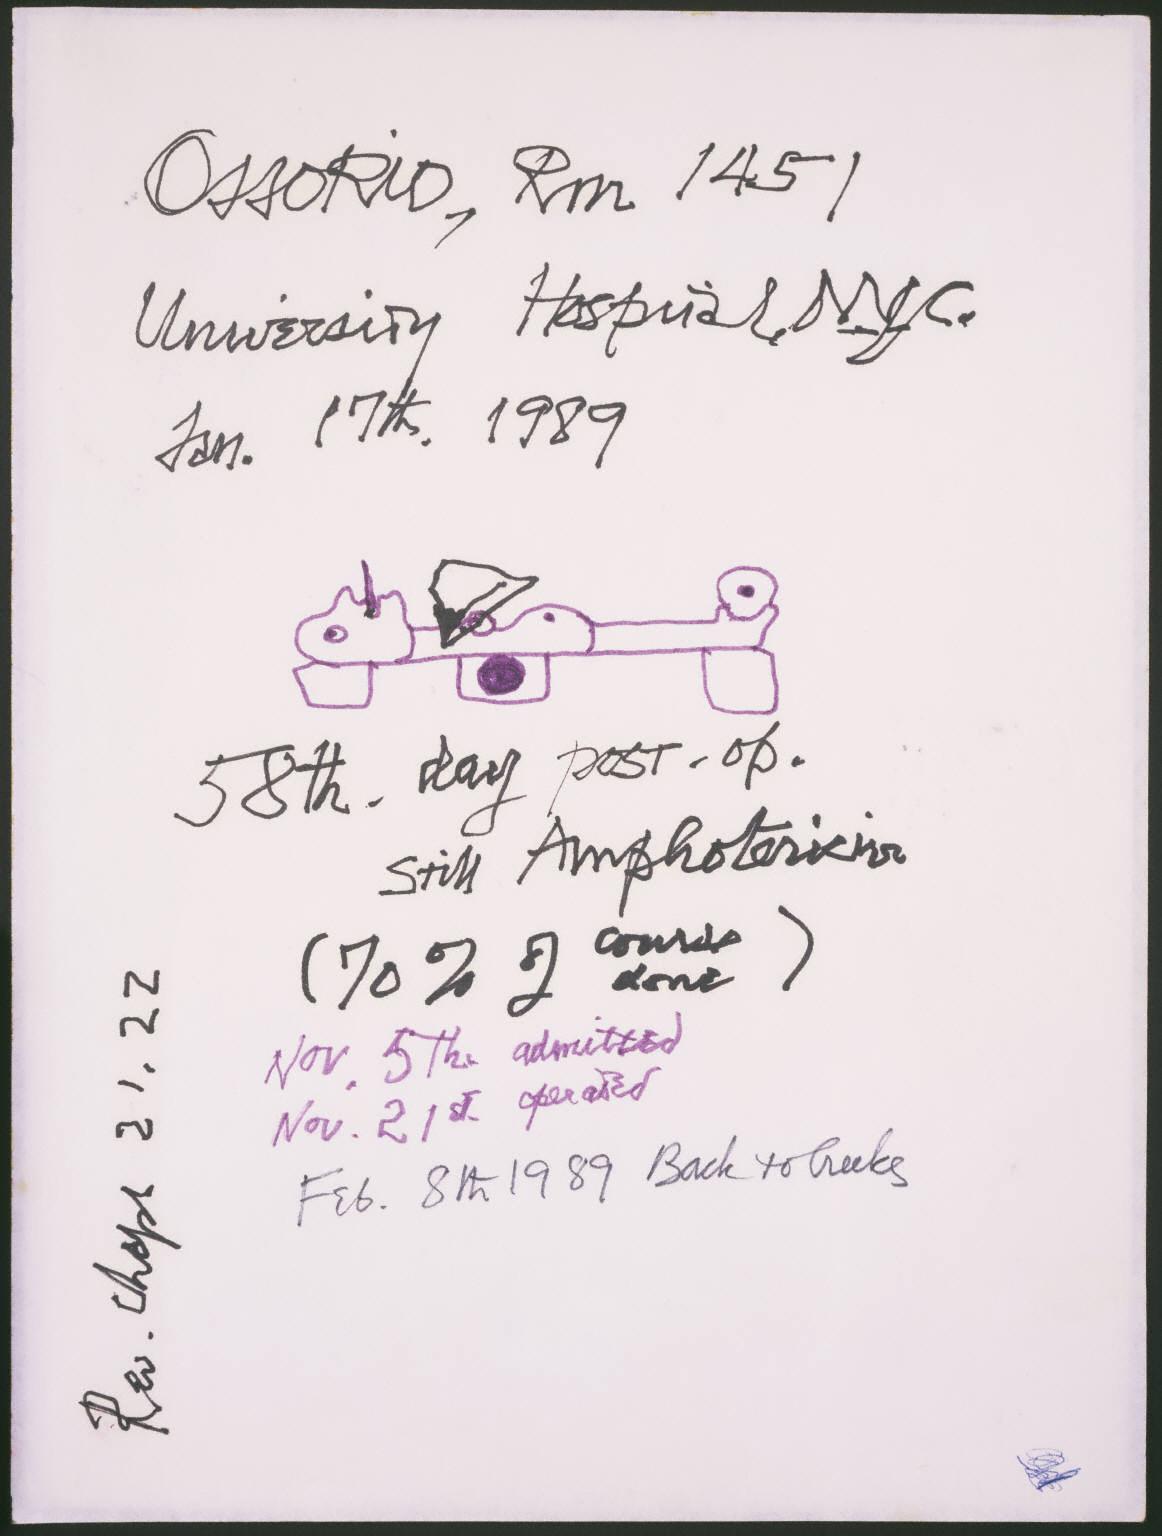 Ossorio, Rm 1451
University Hospital, N.Y.C.
Jan. 17th. 1989
58th. day post-op.
still Amphotericin
(70% of course done)
Nov. 5th. admitted
Nov. 21st. operated
Feb. 8th 1989 Back to Creeks
Rev. Chap 21.22